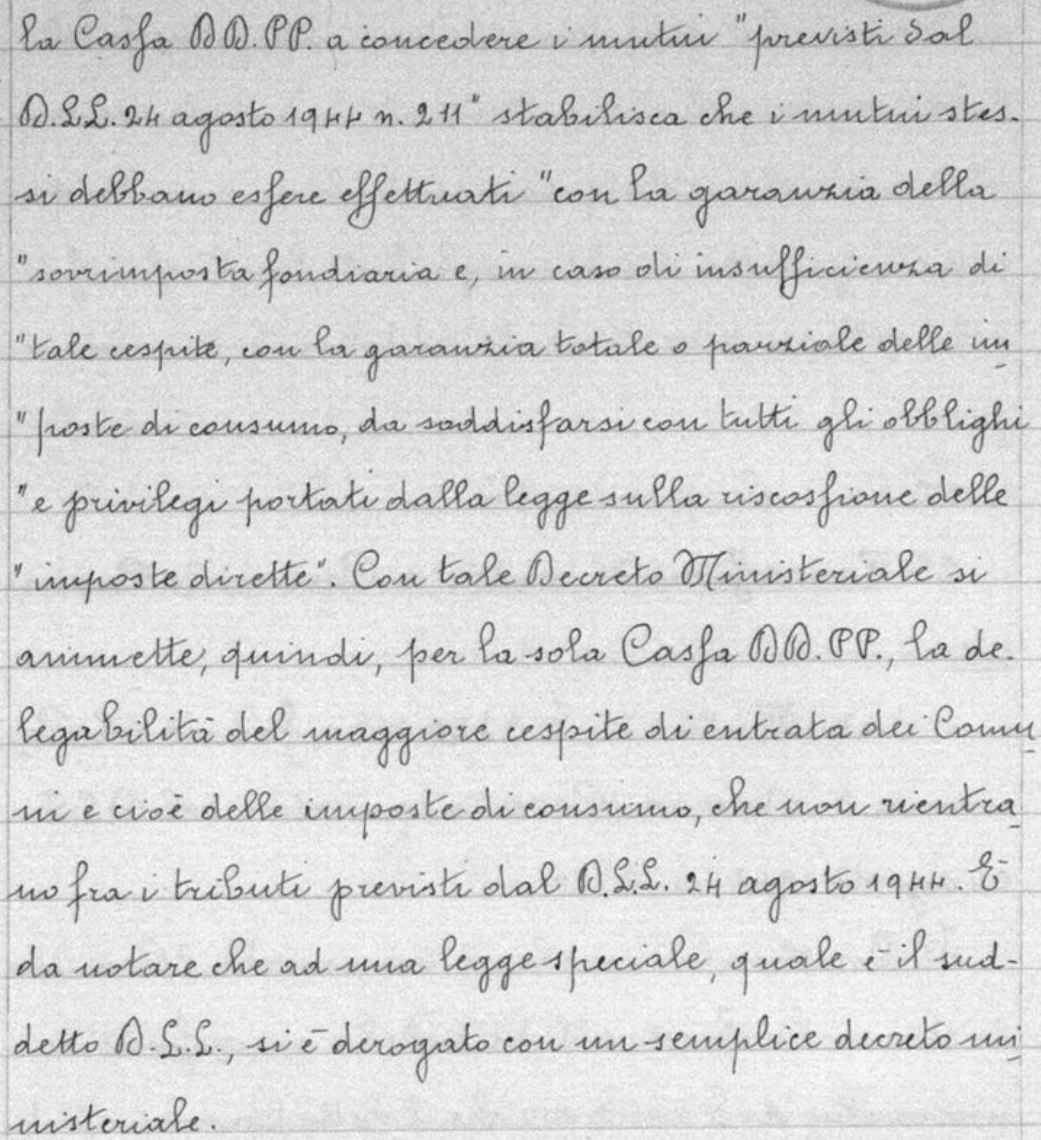 la Cassa DD.PP. a concedere i mutui "previsti dal
D.L.L. 24 agosto 1944 n. 211" stabilisca che i mutui stes-
si debbano essere effettuati "con la garanzia della
"sovrimposta fondiaria e, in caso di insufficienza di
"tale cespite, con la garanzia totale o parziale delle im
"poste di consumo, da soddisfarsi con tutti gli obblighi
"e privilegi portati dalla legge sulla riscossione delle
"imposte dirette". Con tale Decreto Ministeriale si
ammette, quindi, per la sola Cassa DD.PP., la de-
legabilità del maggiore cespite di entrata dei Comu
ni e cioè delle imposte di consumo, che non rientra
no fra i tributi previsti dal D.L.L. 24 agosto 1944. È
da notare che ad una legge speciale, quale è il sud-
detto D.L.L., si è derogato con un semplice decreto mi
nisteriale.